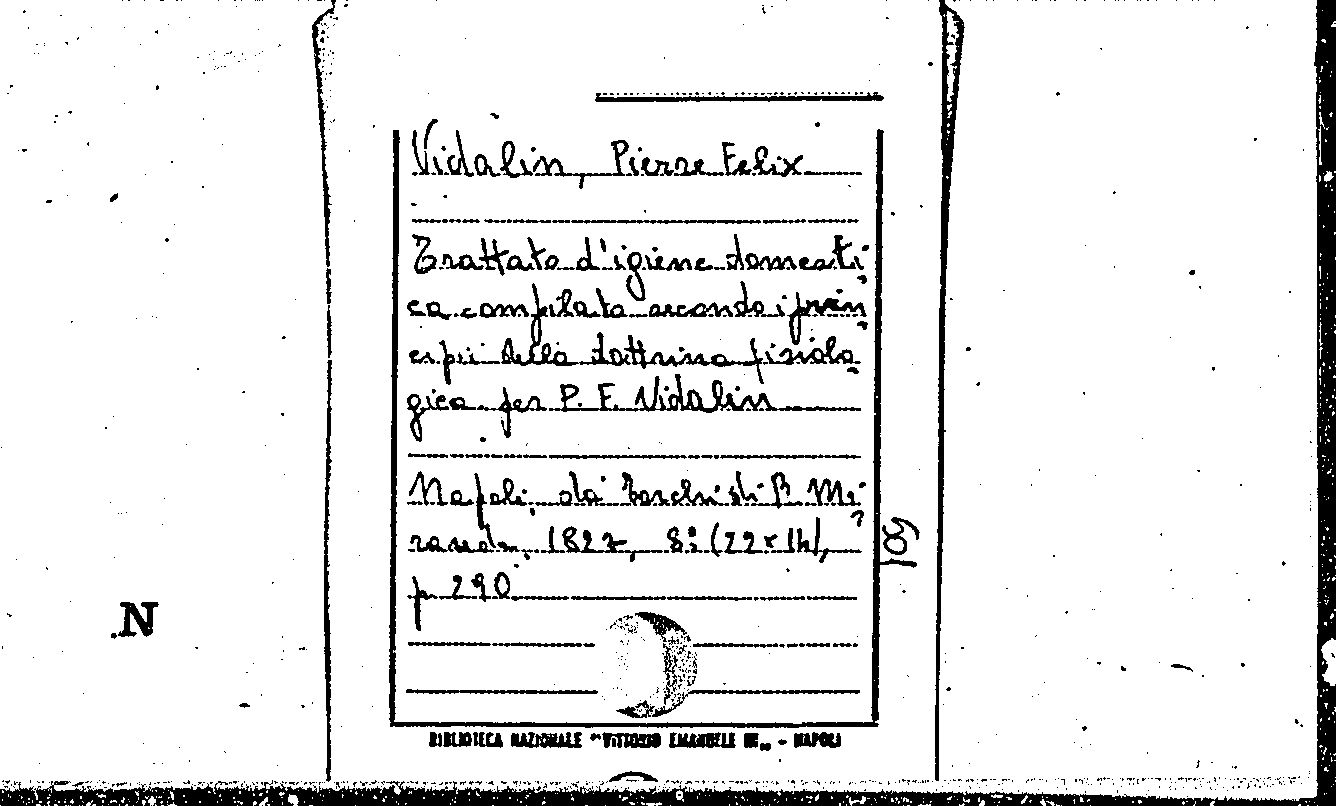 Vidalin, Pierre Felix
Trattato d'igiene domesti-
ca compilato secondo i prin-
cipii della dottrina fisiolo-
gica per P. F. Vidalin
Napoli, da' Torchi di B. Mi-
randa, 1827, 8° (22x14),
p. 290
109
N
BIBLIOTECA NAZIONALE "VITTORIO EMANUELE III" - NAPOLI